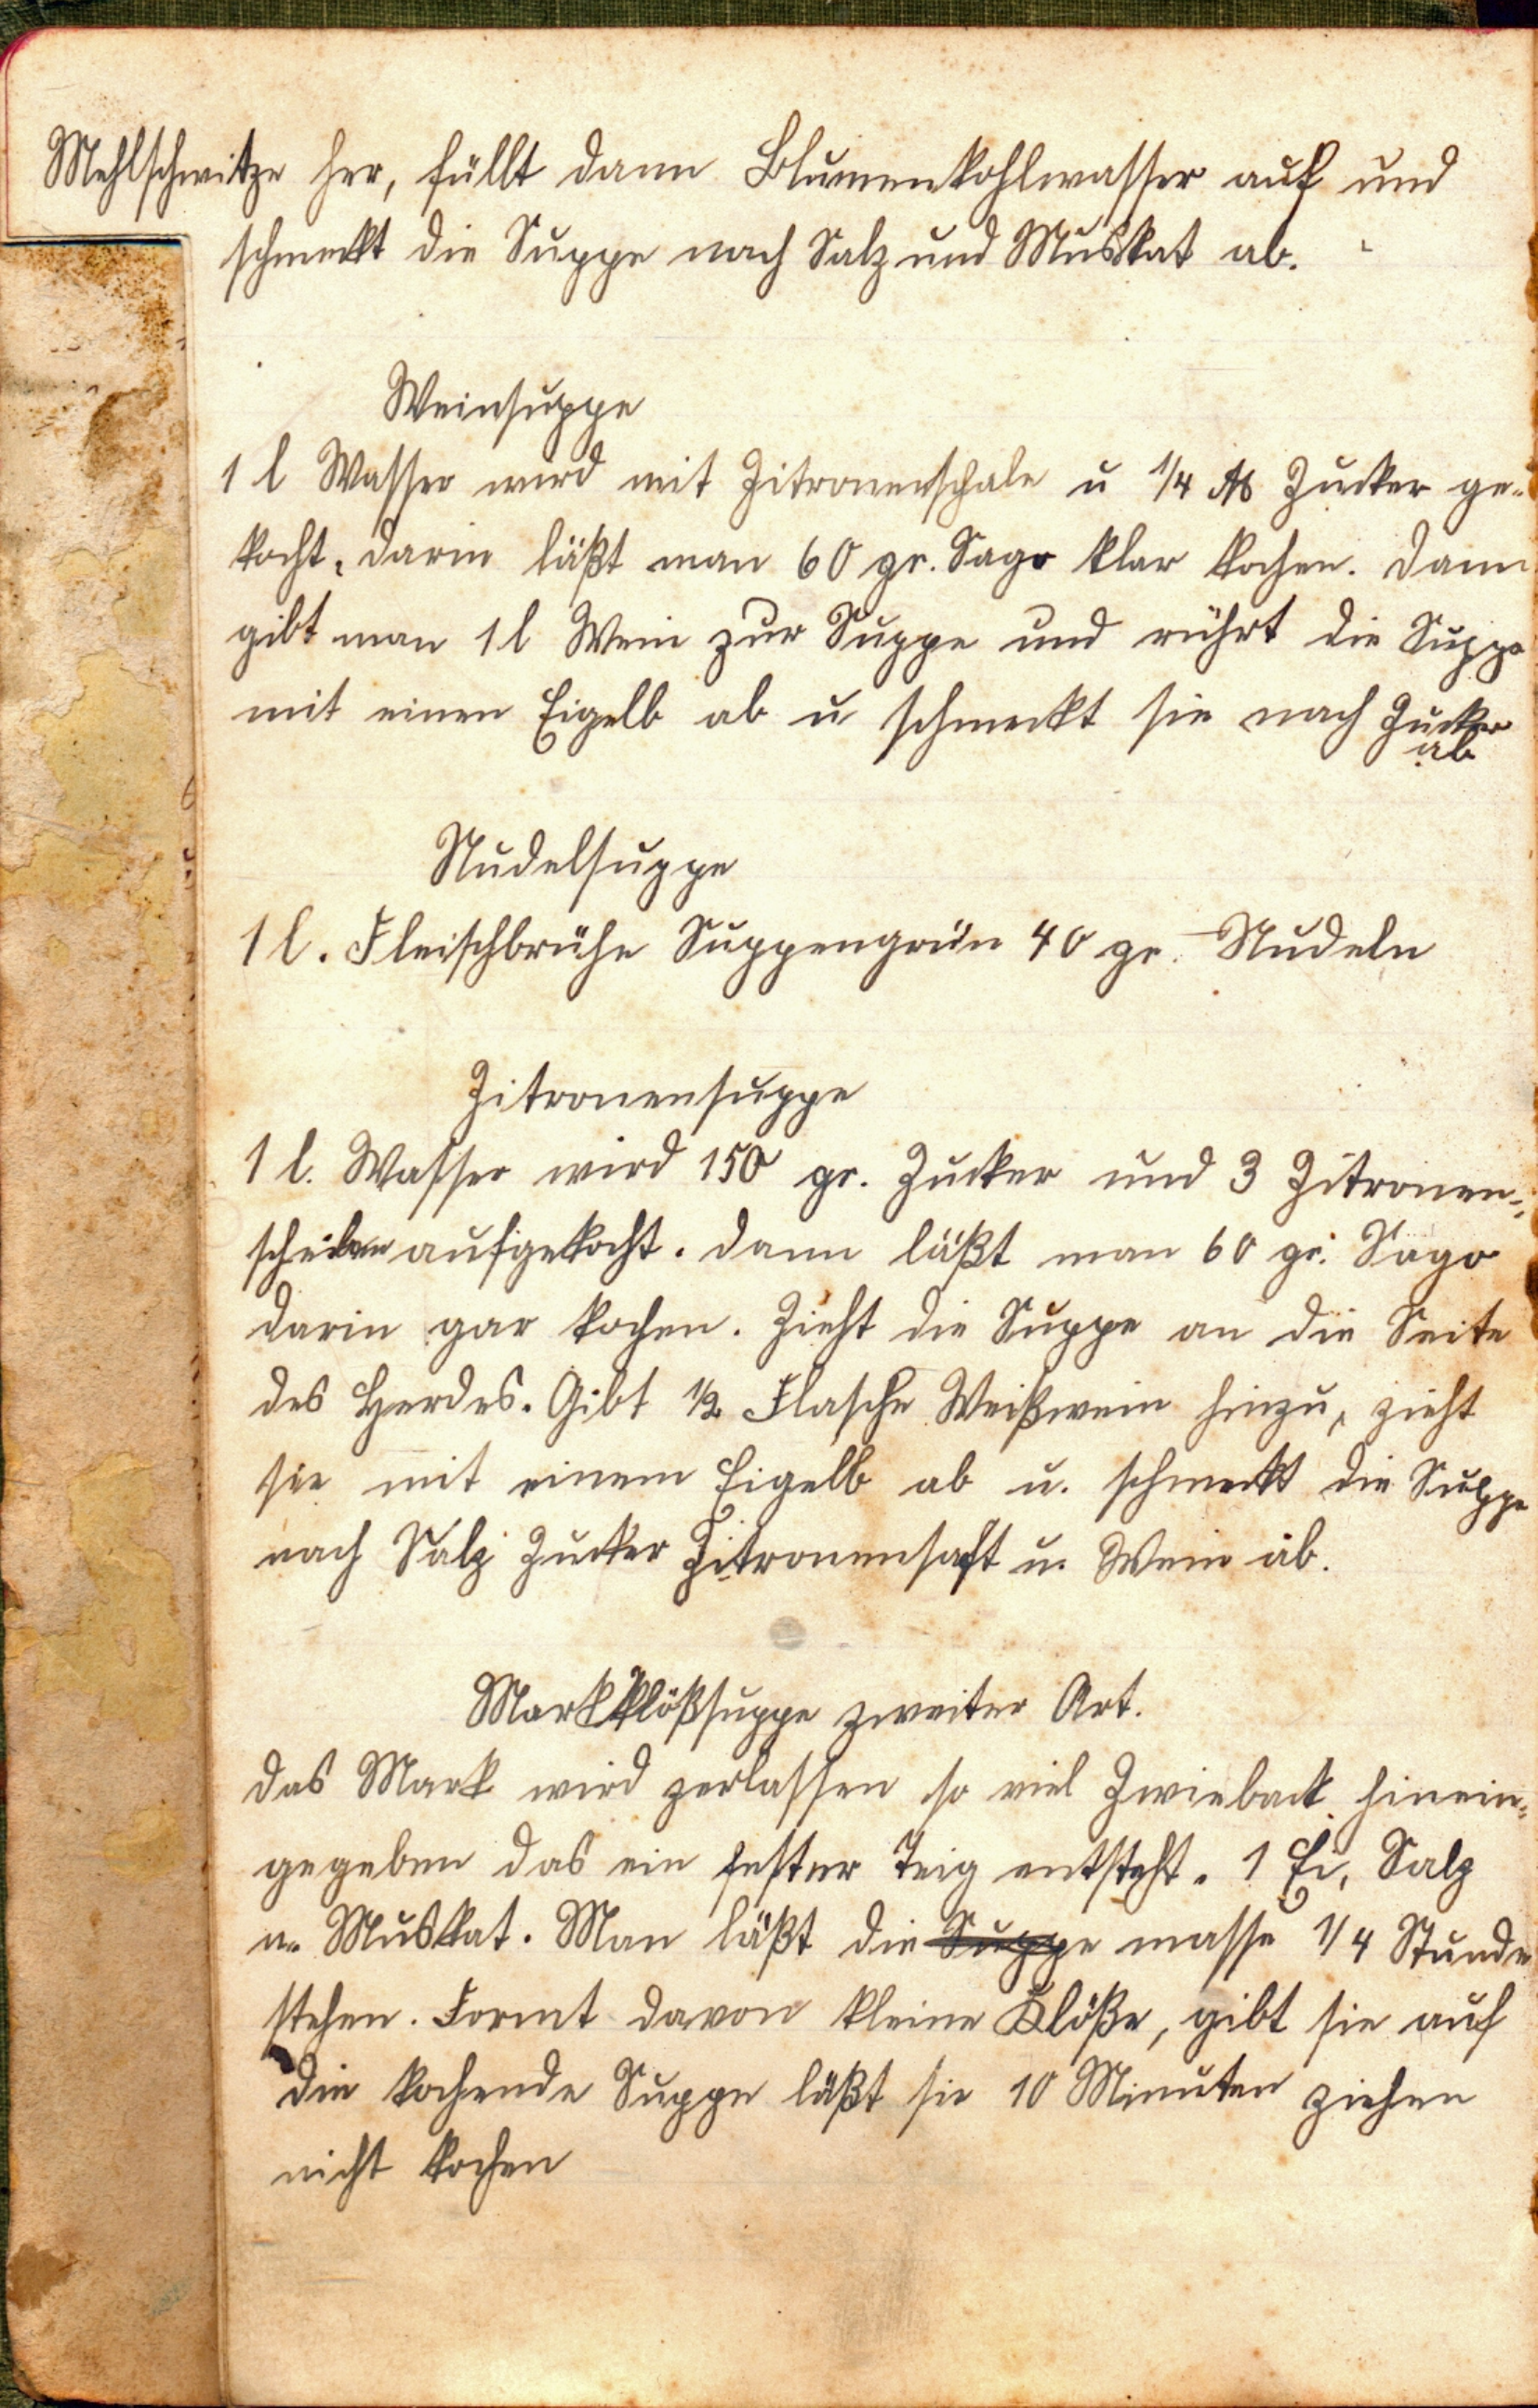 Mehlschwitze her, füllt dann Blumenkohlwasser auf und
schmeckt die Suppe nach Salz und Muskat ab.
Weinsuppe
1 l Wasser wird mit Zitronenschale u 1/4 ℔ Zucker ge-
kocht, darin läßt man 60 gr. Sago klar kochen. Dann
gibt man 1 l Wein zur Suppe und rührt die Suppe
mit einen Eigelb ab u schmeckt sie nach Zucker
ab
Nudelsuppe
1 l. Fleischbrühe Suppengrün 40 gr. Nudeln
Zitronensuppe
1 l. Wasser wird 150 gr. Zucker und 3 Zitronen-
scheiben aufgekocht. Dann läßt man 60 gr. Sago
darin gar kochen. Zieht die Suppe an die Seite
des Herdes. Gibt 1/2 Flasche Weißwein hinzu, zieht
sie mit einem Eigelb ab u. schmeckt die Suppe
nach Salz Zucker Zitronensaft u. Wein ab.
Markklößsuppe zweiter Art.
Das Mark wird zerlassen so viel Zwieback hinein-
gegeben das ein fester Teig entsteht. 1 Ei, Salz
u. Muskat. Man läßt die Suppe masse 1/4 Stunde
stehen. Formt davon kleine Klöße, gibt sie auf
die kochende Suppe läßt sie 10 Minuten ziehen
nicht kochen